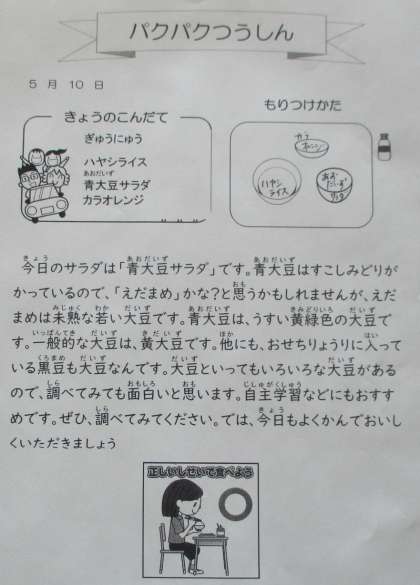 パクパクつうしん
5月10日
きょうのこんだて
ぎゅうにゅう
ハヤシライス
青大豆サラダ
カラオレンジ
もりつけかた
カラ
オレンジ
ハヤシ
ライス
あお
だいず
サラダ
今日のサラダは「青大豆サラダ」です。青大豆はすこしみどりが
かっているので、「えだまめ」かな?と思うかもしれませんが、えだ
まめは未熟な若い大豆です。青大豆は、うすい黄緑色の大豆で
す。一般的な大豆は、黄大豆です。他にも、おせちりょうりに入って
いる黒豆も大豆なんです。大豆といってもいろいろな大豆がある
ので、調べてみても面白いと思います。自主学習などにもおすす
めです。ぜひ、調べてみてください。では、今日もよくかんでおいし
くいただきましょう
正しいしせいで食べよう